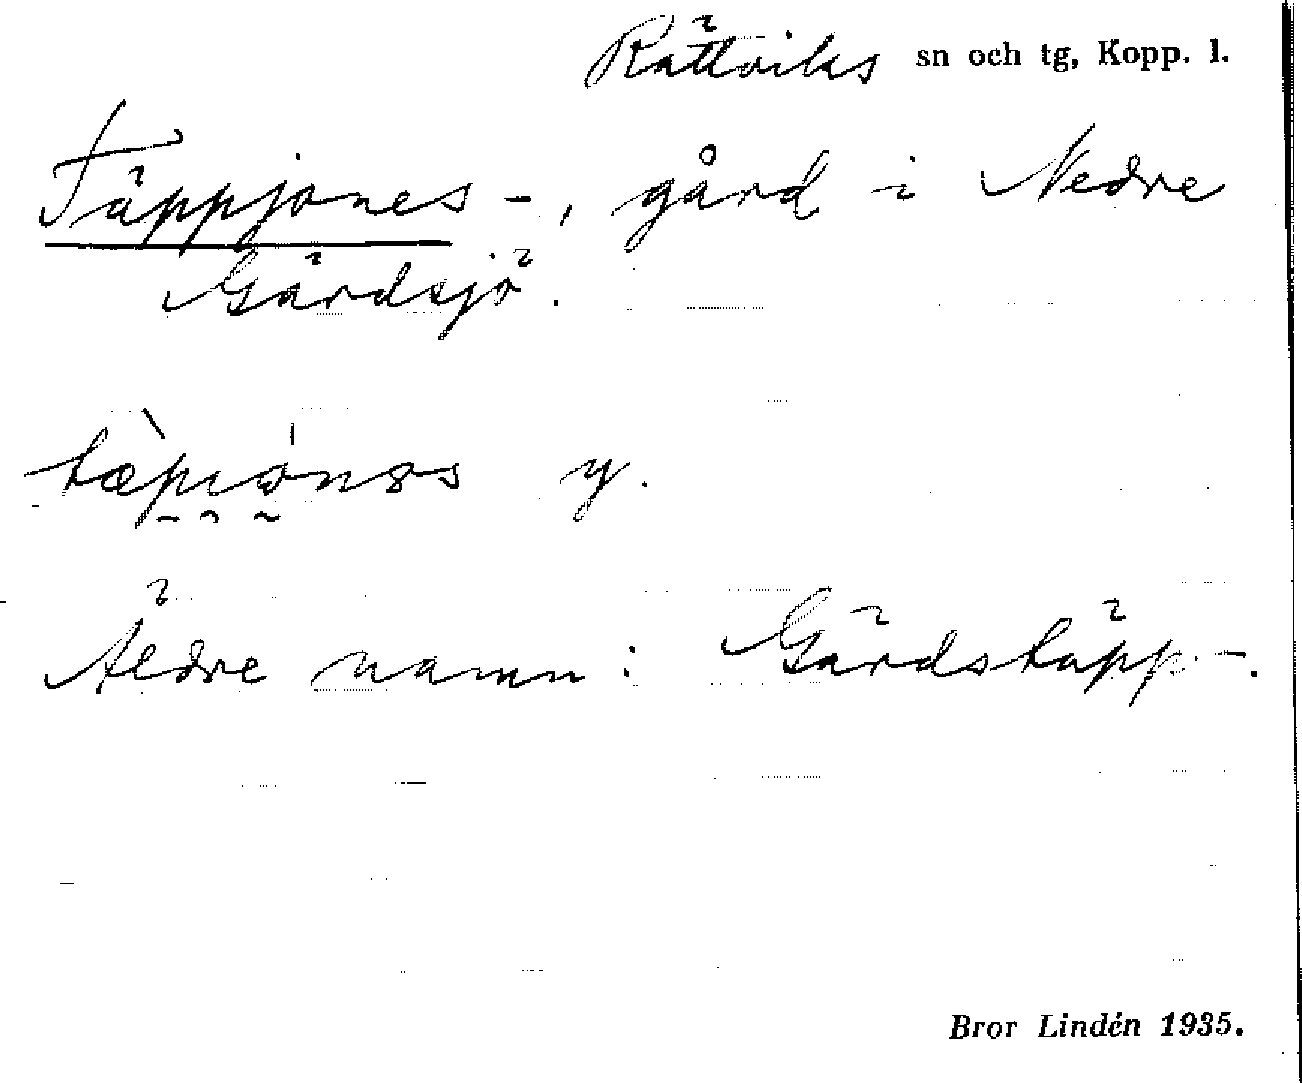 Rättviks sn och tg, Kopp. l.
Täppjones-, gård i Nedre
Gärdsjö.
y.
Äldre namn: Gärdstäpp-.
Bror Lindén 1935.